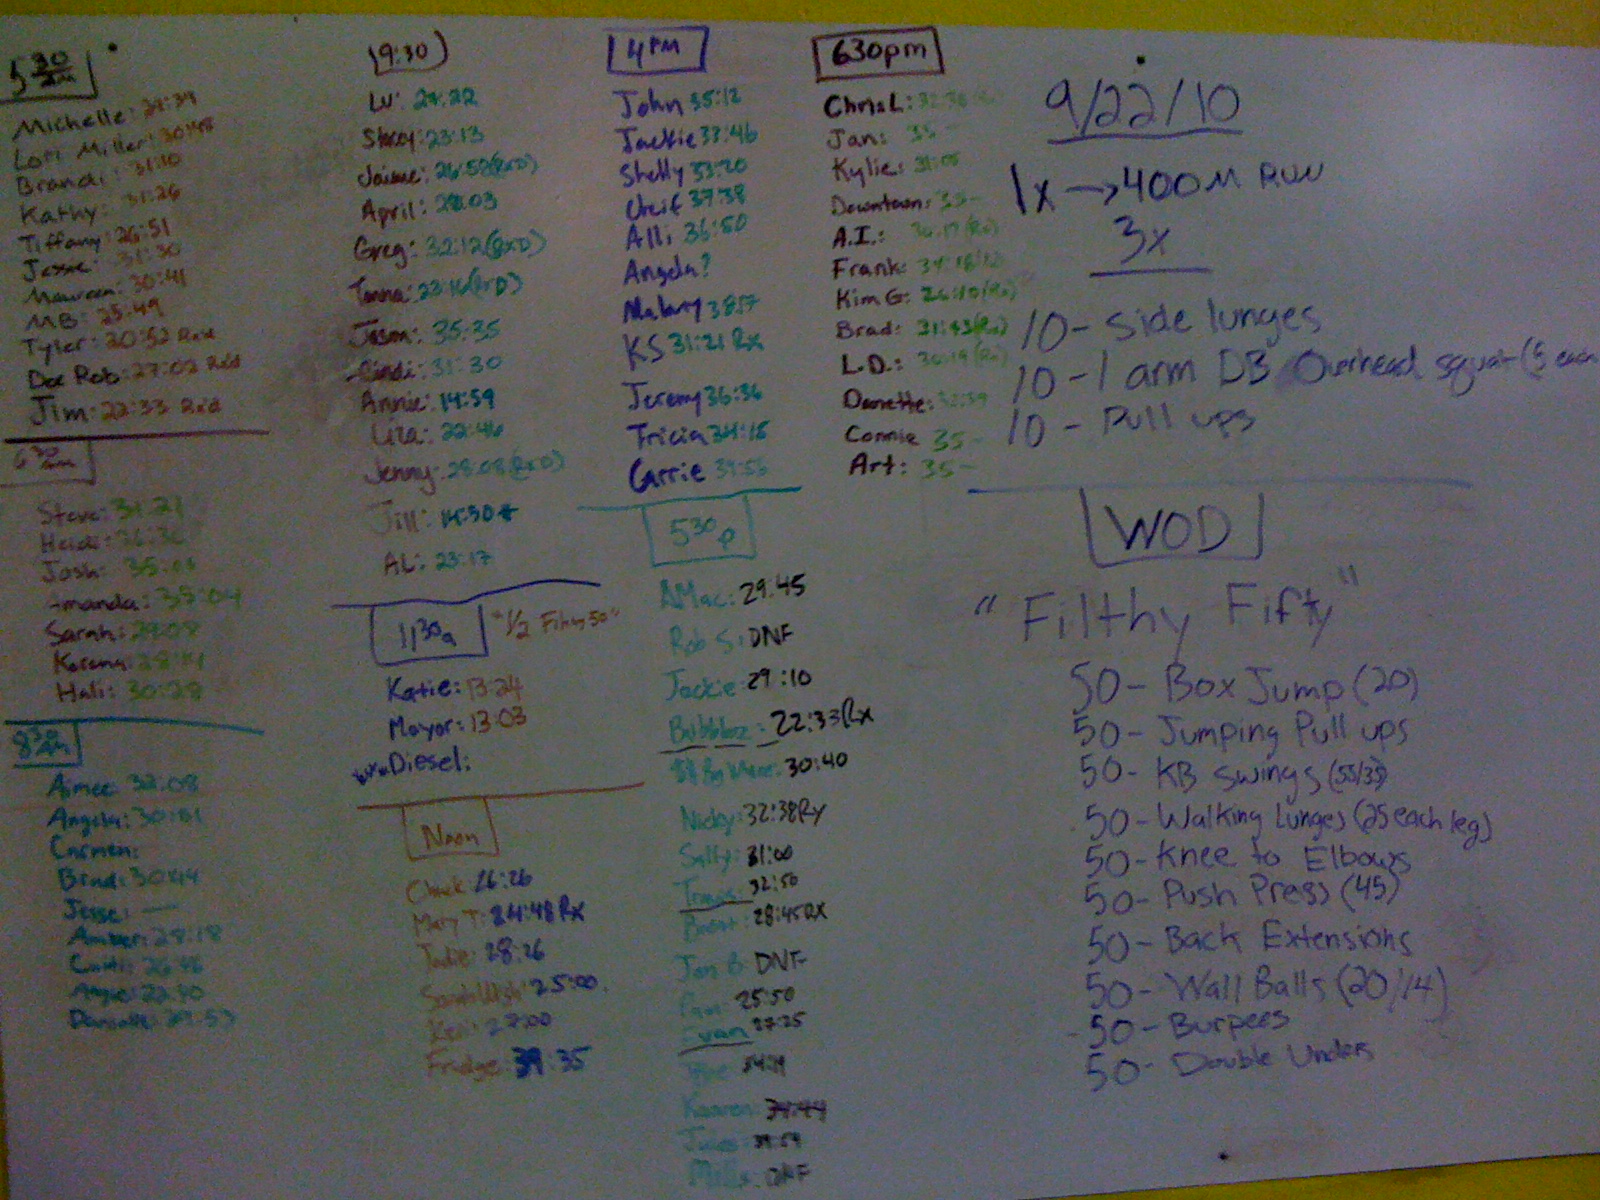 5 30 am
Michelle:
Lori Miller: 30:48
Brandi: 31:10
Kathy: 31:26
Tiffany: 26:51
Jessie: 31:30
Maureen: 30:41
MB: 25:49
Tyler: 20:52 Rx'd
Doc Rob: 27:02 Rx'd
Jim: 22:33 Rx'd
6 30 am
Steve: 34:21
Heidi:
Josh: 35:01
Amanda: 35:04
Sarah: 29:08
Korena:
Hali: 30:28
8 30 am
Aimee: 32:08
Angela:
Carmen:
Brad: 30:44
Jesse: —
Amber: 28:18
Angie: 22:40
Danielle: 29:53
9:30
Lu:
Stacy: 23:13
Jaime: 26:58 (RxD)
April: 28:03
Greg: 32:12 (RxD)
Jenna: 23:16 (RxD)
Jason: 35:35
Cindi: 31:30
Annie: 14:59
Liza: 22:46
Jenny: 28:08 (RxD)
Jill: 14:50
AL: 23:17
11 30 a "1/2 Filthy 50"
Katie: 13:24
Mayor: 13:03
Diesel:
Noon
Chuck: 26:26
Mary T: 24:48 Rx
Judie: 28:26
25:00
Ken: 27:00
Fridge: 39:35
4 PM
John 35:12
Jackie 33:46
Shelly 33:20
37:38
Alli 36:50
Angela?
KS 31:21 Rx
Jeremy 36:36
Tricia 34:18
Carrie 39:56
5 30 p
AMac: 29.45
Rob S: DNF
Jackie: 29:10
22:33 Rx
30:40
Nicky: 32:38 Rx
Sally: 31:00
Travis: 32:50
Brent: 28:45 RX
Jon B DNF
Pam: 25:50
Evan 27:25
Karren: 34:44
Jules: 39:59
Mills: DNF
630pm
Chris L:
Jan: 35 -
Kylie: 31:05
Downtown: 35 -
A.I.: 30:17 (Rx)
Frank:
Kim G: 26:40 (Rx)
Brad: 31:43 (Rx)
L.D.: 30:19 (Rx)
Danette: 32:59
Connie 35 -
Art: 35 -
9/22/10
1x → 400M RUN
3x
10 - Side lunges
10 - 1 arm DB Overhead squat (5 each
10 - Pull ups
WOD
"Filthy Fifty"
50 - Box Jump (20)
50 - Jumping Pull ups
50 - KB Swings (55/35)
50 - Walking Lunges (25 each leg)
50 - Knee to Elbows
50 - Push Press (45)
50 - Back Extensions
50 - Wall Balls (20/14)
50 - Burpees
50 - Double Unders